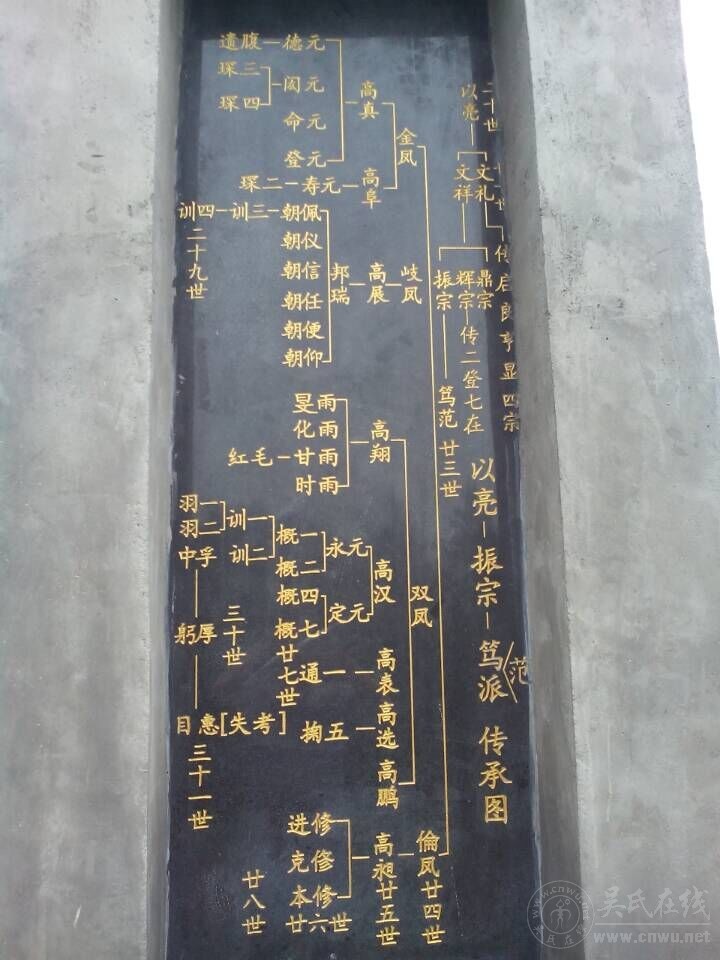 以亮-振宗-笃派 传承图
范
以亮
文礼
文祥
启良亨显四宗
鼎宗
辉宗-传二登七在
振宗
笃范 廿三世
金凤
岐凤
双凤
倫凤廿四世
高真
高阜
高展
邦瑞
高翔
高汉
高表
高选
高鹏
高昶廿五世
遗腹-德元
琛三
琛四
闳元
命元
登元
琛二-寿元
训四-训三-朝佩
朝仪
朝信
朝任
朝便
朝仰
二十九世
旻雨
化雨
红毛-甘雨
时雨
羽一
羽二
训一
训二
概一
概二
概四
概七
永元
定元
中孚
躬厚
三十世
廿七世
通一
目惠[失考]
掬五
三十一世
进修
克修
本修
廿六世
廿八世
吴氏在线
www.cnwu.net